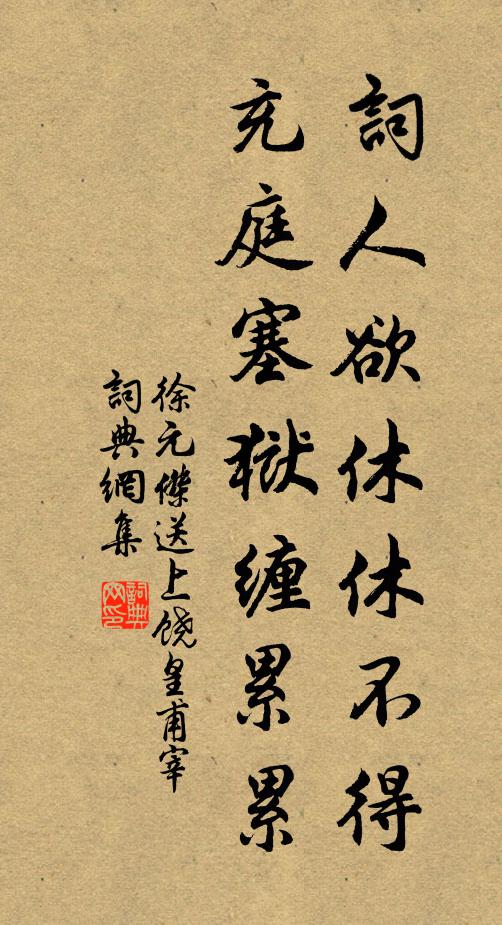 詞人欲休休不得
充庭塞獄纏累累
徐元傑送上饒皇甫宰
詞典網集
詞典
网印